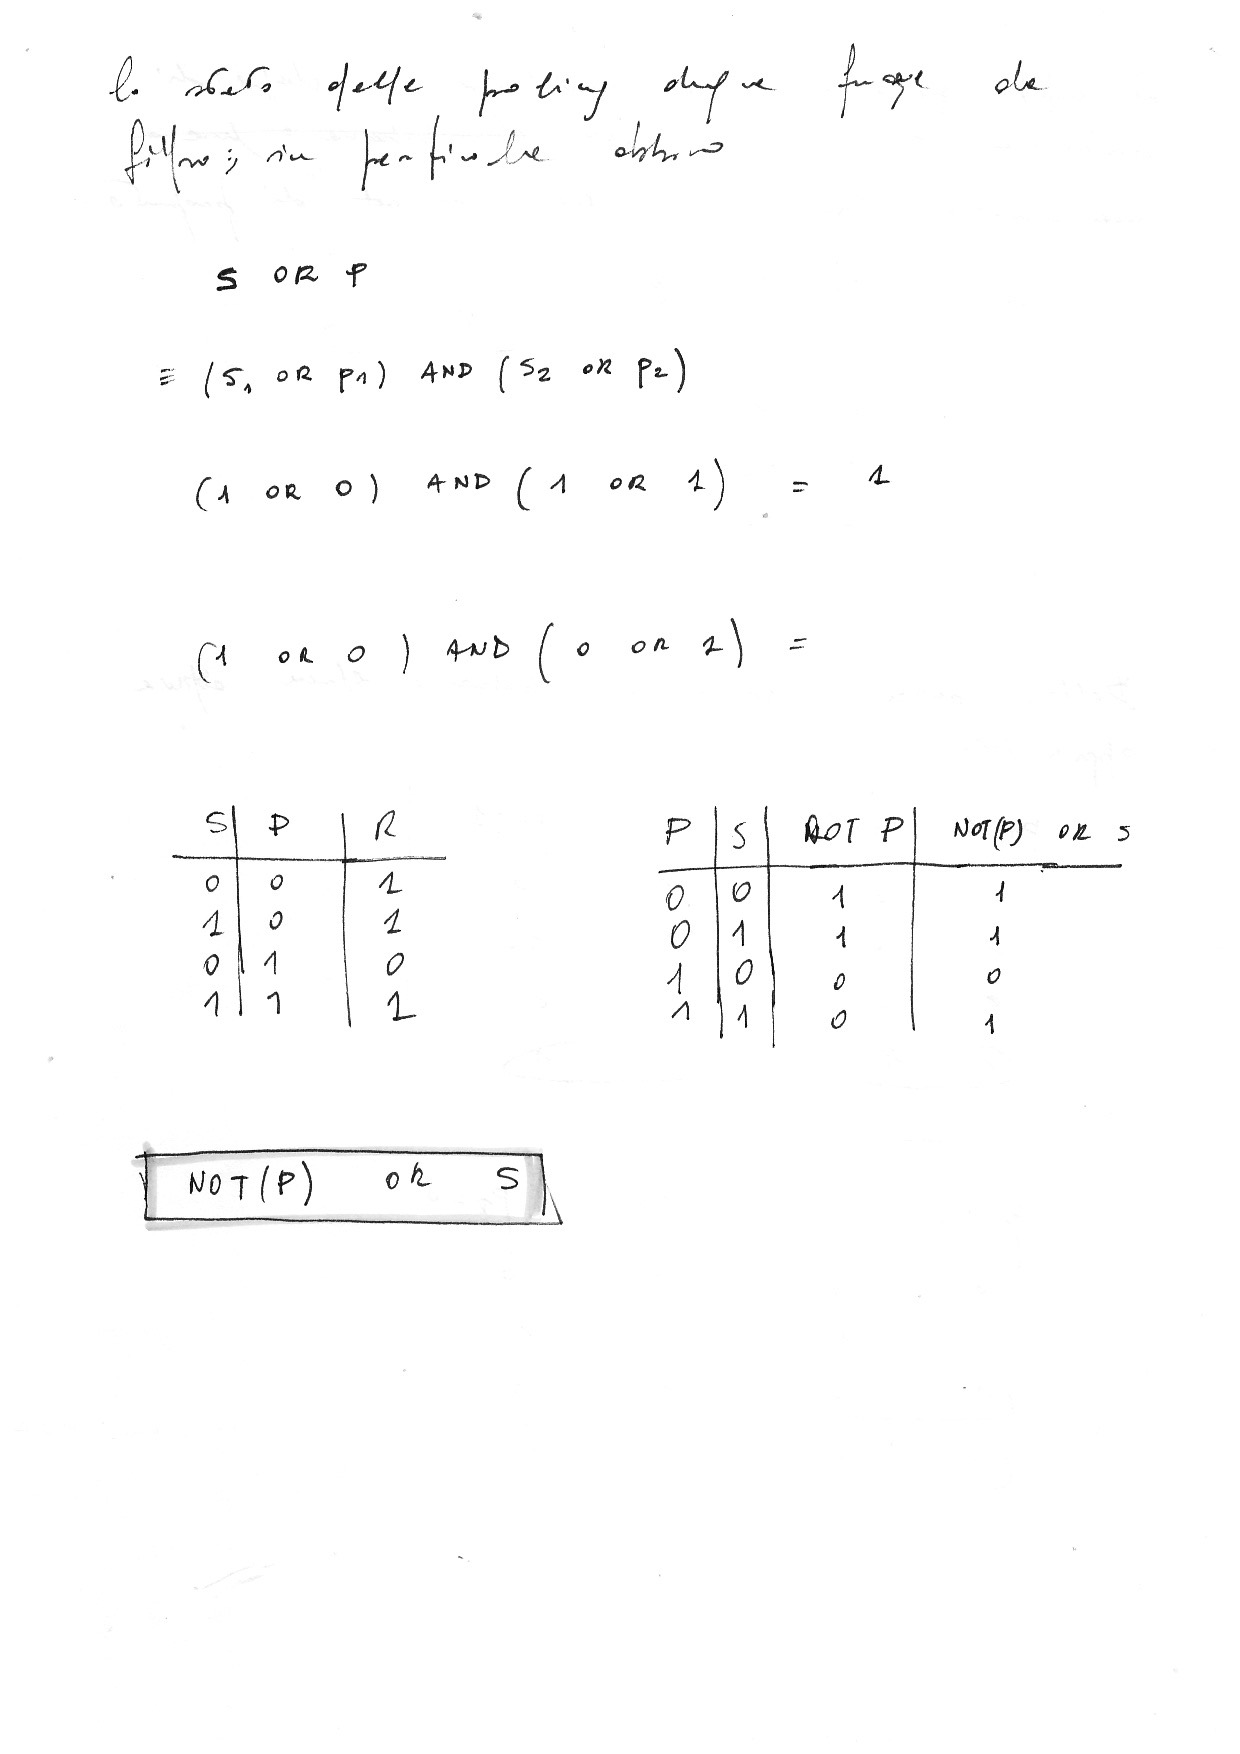 lo stato della policy dunque funge da
filtro; in particolare abbiamo
S OR P
≡ (S1 OR P1) AND (S2 OR P2)
(1 OR 0) AND (1 OR 1) = 1
(1 OR 0) AND (0 OR 1) =
S P R
0 0 1
1 0 1
0 1 0
1 1 1
P S NOT P NOT(P) OR S
0 0 1 1
0 1 1 1
1 0 0 0
1 1 0 1
NOT(P) OR S